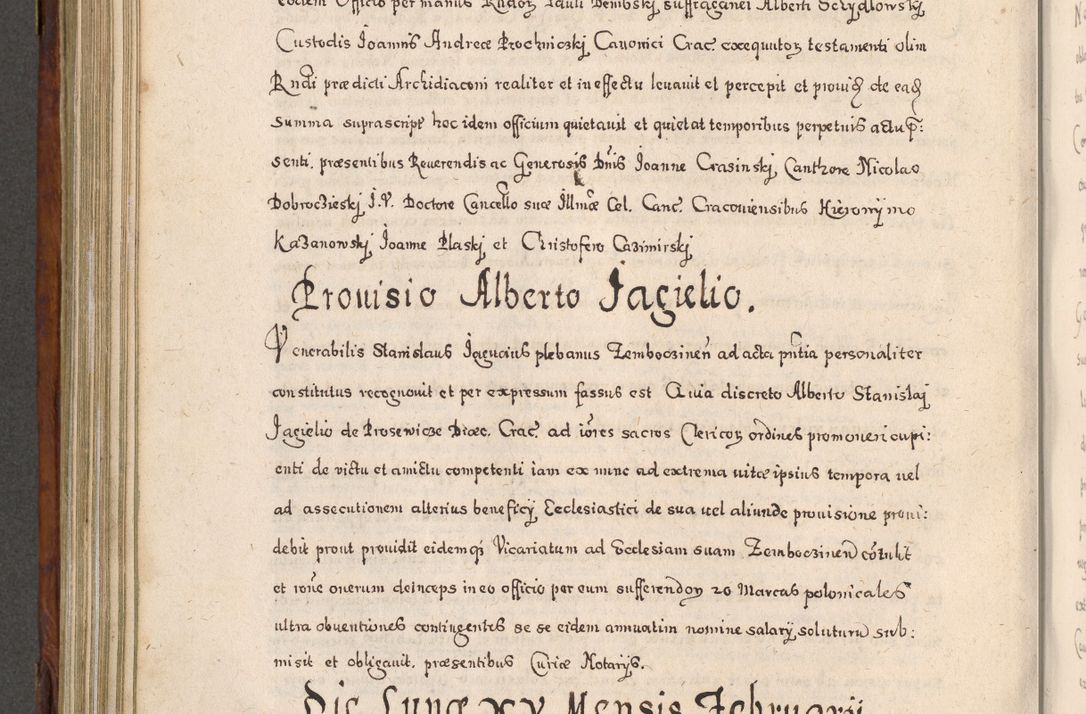 eodem Officio per manus Rndoꝝ Pauli Dembskj suffraganei Alberti Sczydlowskj
Custodis Joannis Andreæ Prochniczkj Canonici Crac. exequutoꝝ testamenti olim
Rndi prædicti Archidiaconi realiter et in effectu leuauit et percepit et prouiđ de eađ
summa suprascript hoc idem officium quietauit et quietat temporibus perpetuis actu p̄:
senti. præsentibus Reuerendis ac Generosis Dnis Joanne Crasinskj, Canthore Nicolao
Dobroczieskj J.V. Doctore Cancello suæ Illmæ Cel. Canc. Cracouiensibus Hieronymo
Kazanowskj Joanne Plaskj et Christofero Cazimirskj
Prouisio Alberto Jagielio.
Venerabilis Stanislaus Jagucius plebanus Zemboczinen ad acta pntia personaliter
constitutus recognouit et per expressum fassus est Quia discreto Alberto Stanislaj
Jagielio de Prosewicze Diæc. Crac. ad iores sacros Clericoꝝ ordines promoueri cupi:
enti de victu et amictu competenti iam ex nunc ad extrema uitæ ipsius tempora uel
ad assecutionem alterius beneficÿ Ecclesiastici de sua uel aliunde prouisione proui:
debit prout prouidit eidemq Vicariatum ad Ecclesiam suam Zemboczinen cotulit
et rone onerum deinceps in eo officio per eum sufferendoꝝ 20 Marcas polonicales
ultra obuentiones contingentes se se eidem annuatim nomine salarÿ soluturu sub:
misit et obligauit. præsentibus Curiæ Notarÿs.
Die Lunæ XV Mensis Februarii